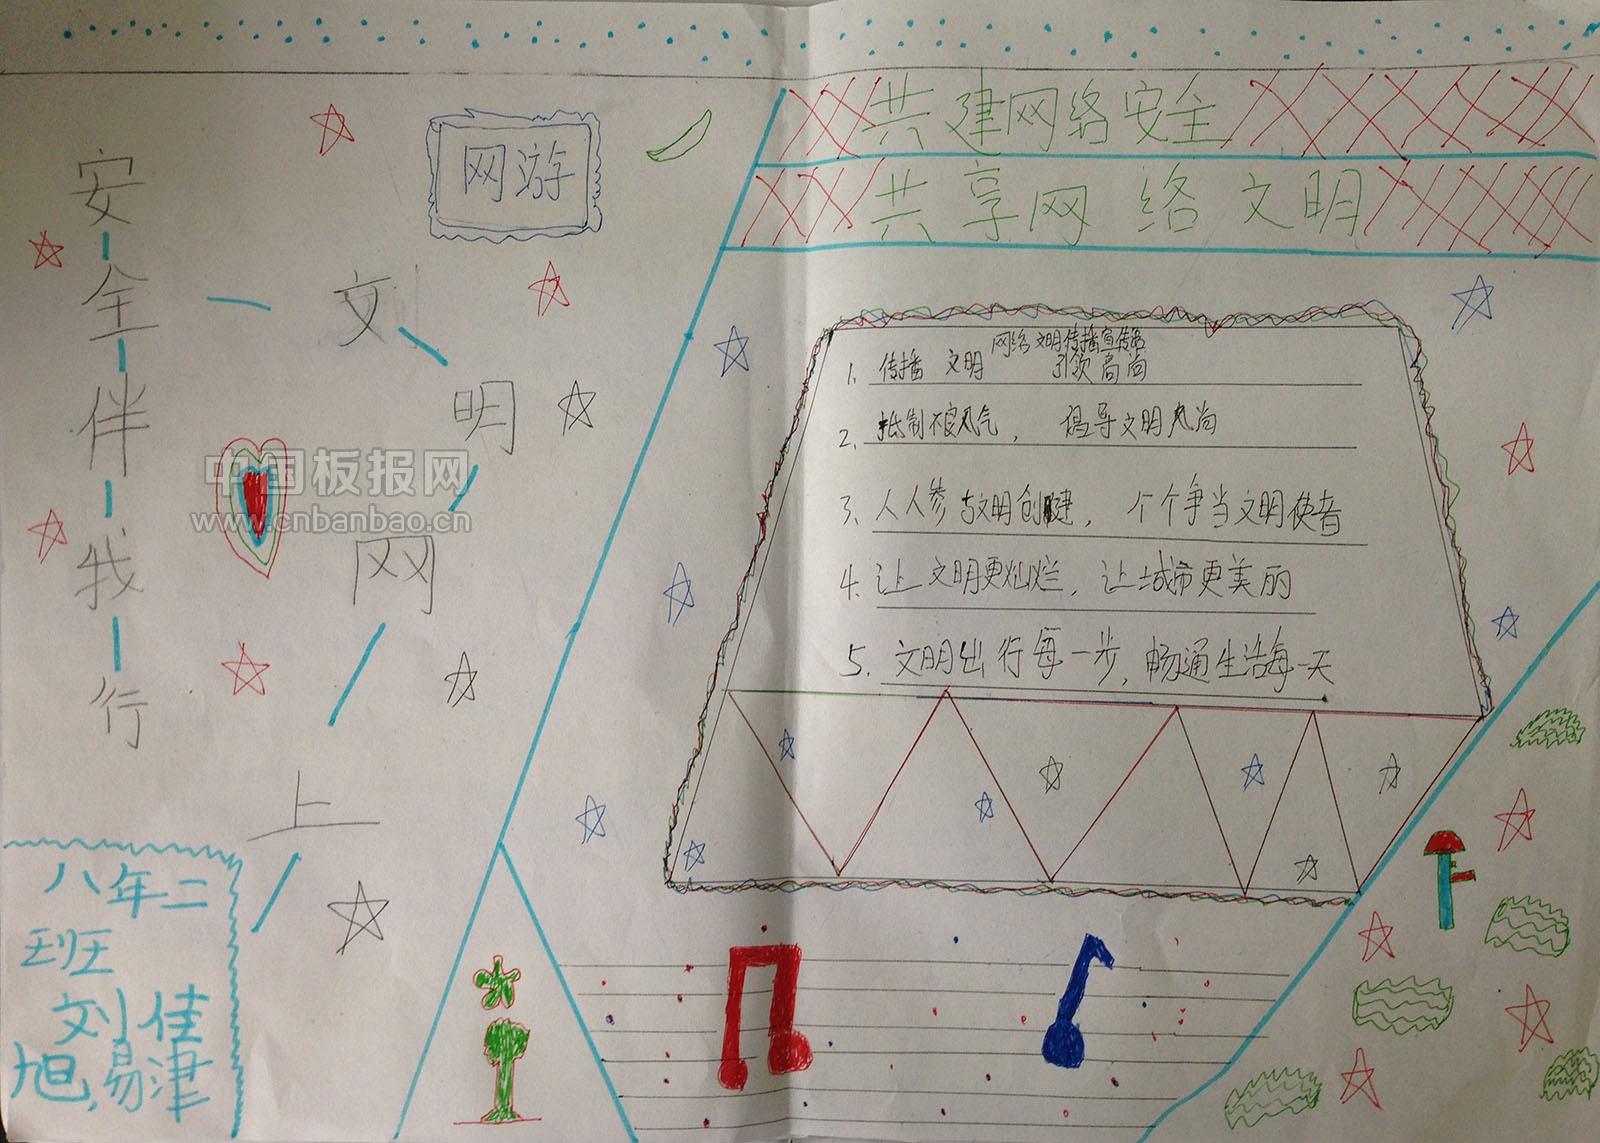 共建网络安全
共享网络文明
网游
安全伴我行
文明网上
网络文明传播宣传语
1. 传播 文明 引领高尚
2. 抵制不良风气， 倡导文明风尚
3、人人参与文明创建， 个个争当文明使者
4. 让文明更灿烂，让城市更美丽
5. 文明出行每一步，畅通生活每一天
八年二
班
刘佳
旭，易津
中国板报网
www.cnbanbao.cn